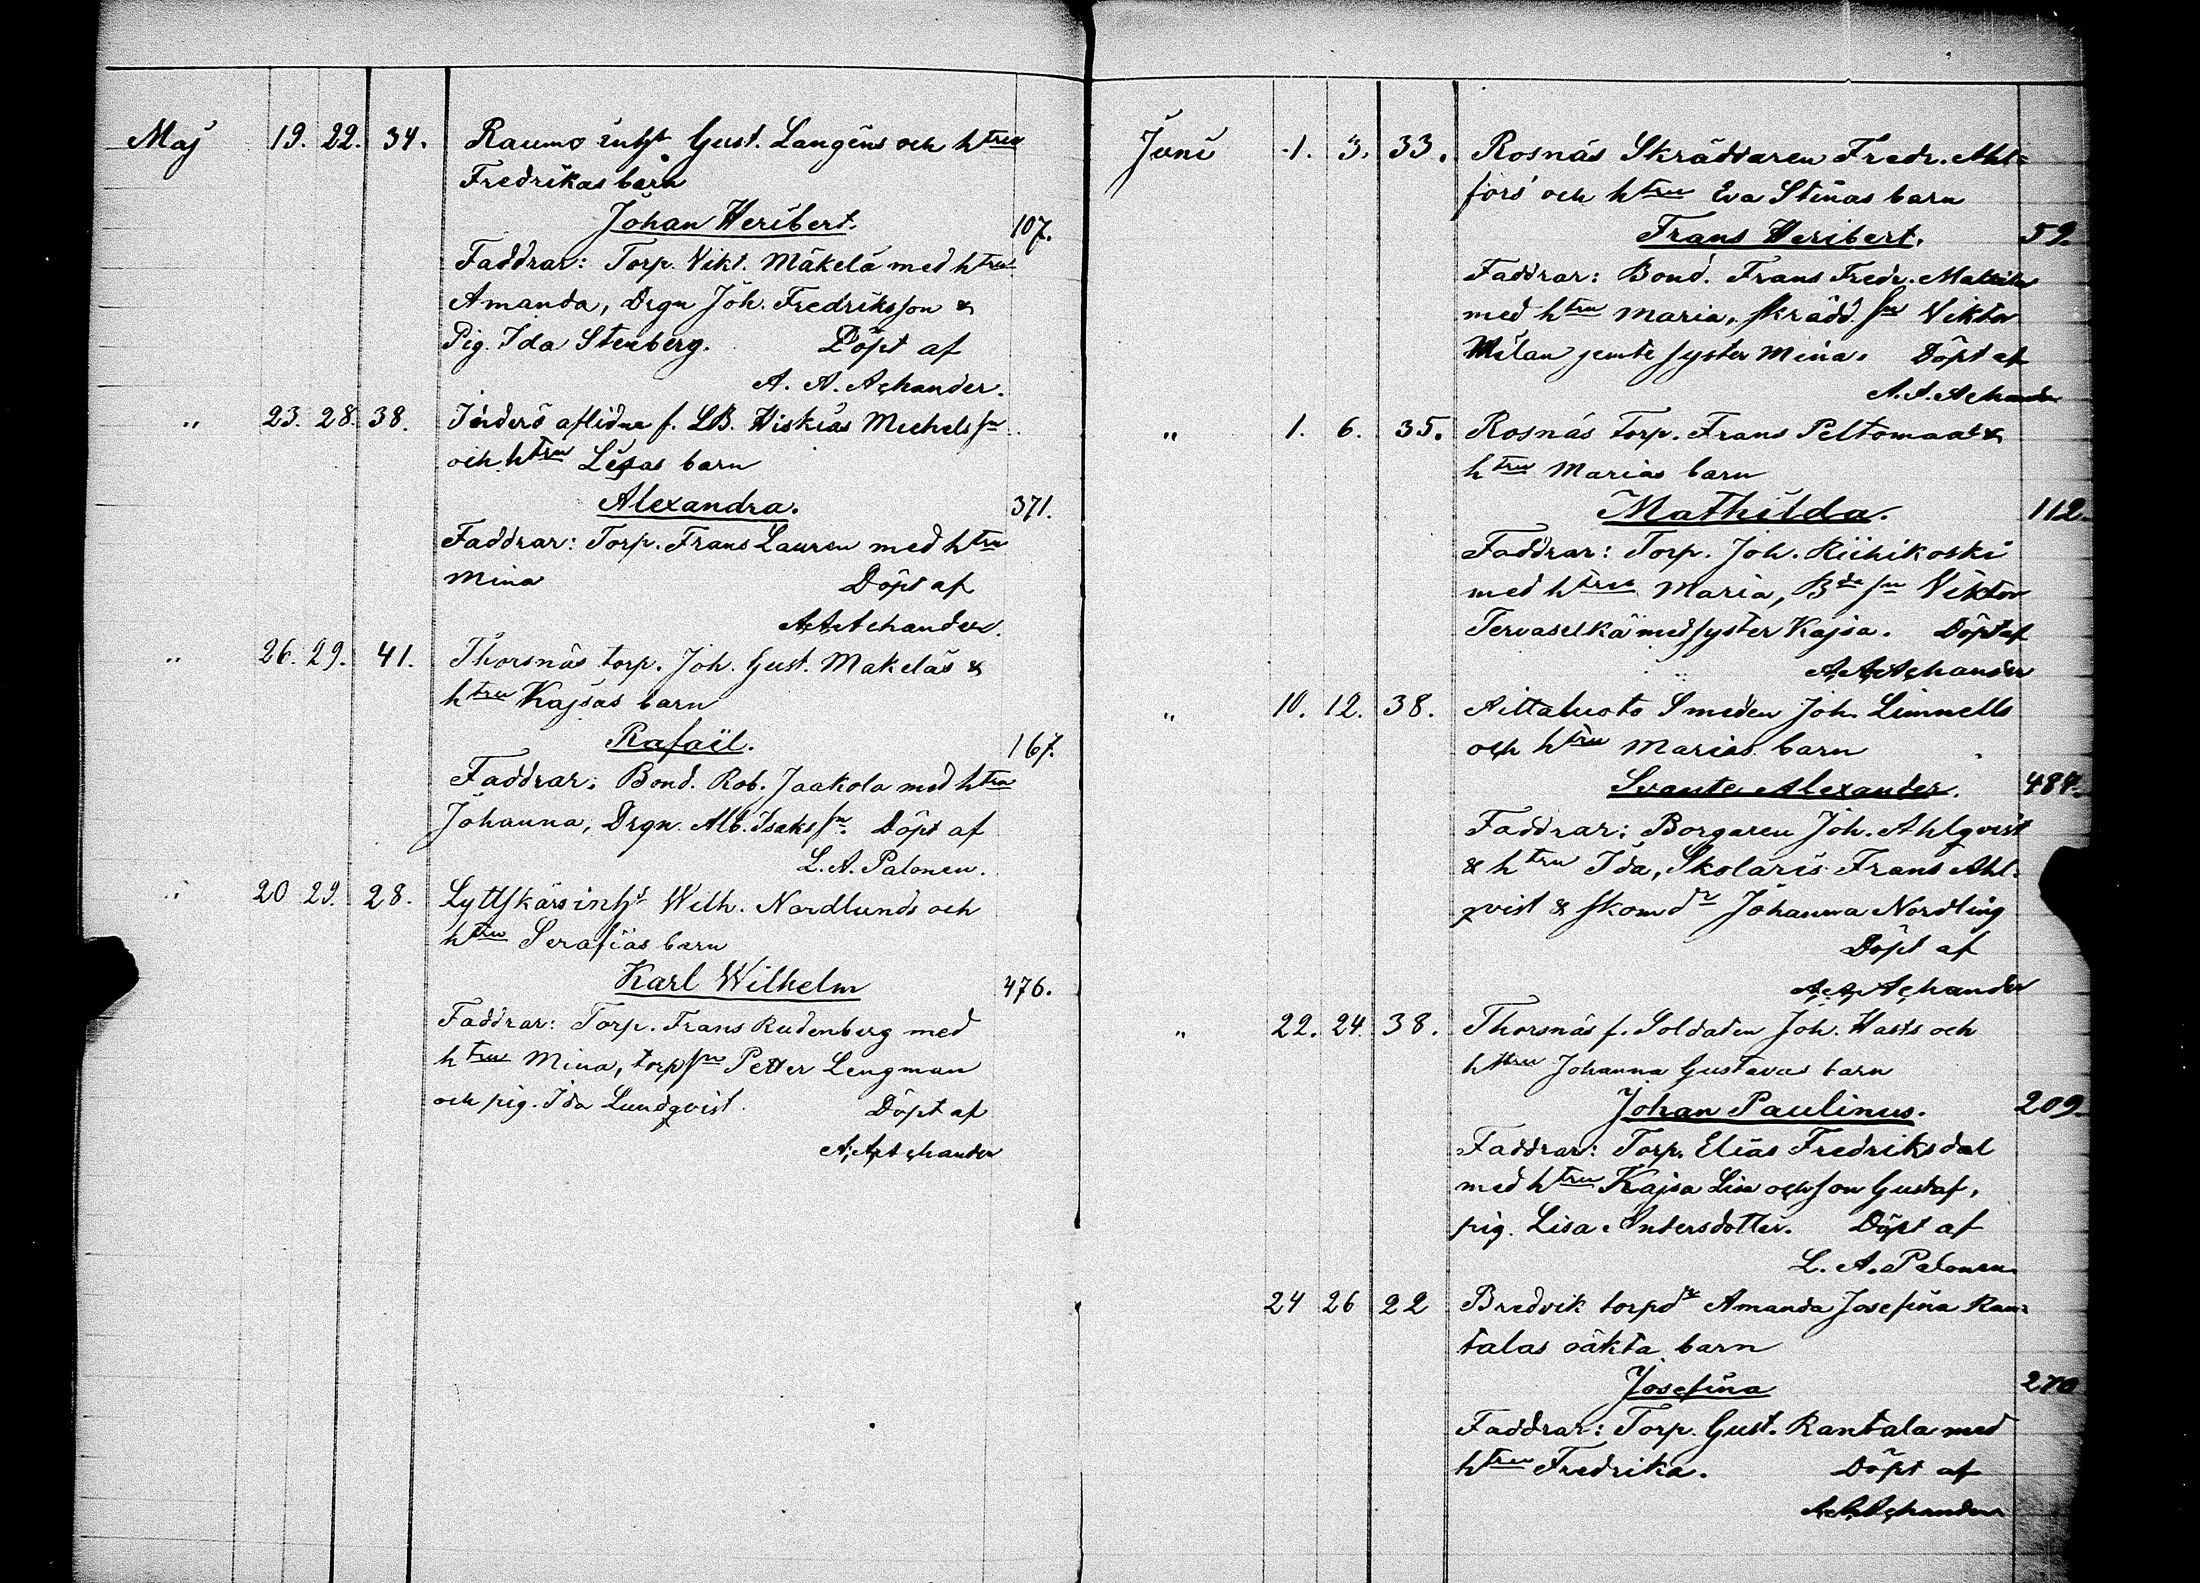 Maj 19. 22. 34. Raumo inhs Gust. Langéns och htru
Fredrikas barn
Johan Heribert. 107.
Faddrar: Torp. Vikt. Mäkelä med htru
Amanda, Drgn Joh. Fredriksson &
Pig. Ida Stenberg. Döpt af
A. A. Achander.
" 23. 28. 38. Inderö aflidne f. LB. Hiskias Michelssn
och htru Lisas barn
Alexandra. 371.
Faddrar: Torp. Frans Lauren med htru
Mina Döpt af
A. A. Achander.
" 26. 29. 41. Thorsnäs torp. Joh. Gust. Mäkeläs &
htru Kajsas barn
Rafaël. 167.
Faddrar: Bond. Rob. Jaakola med htru
Johanna, Drgn. Alb. Isakssn. Döpt af
L. A. Palonen.
" 20 29. 28. Lyttskärs inhs Wilh. Nordlunds och
htru Serafias barn
Karl Wilhelm 476.
Faddrar: Torp. Frans Rudenberg med
htru Mina, torpsn Petter Lengman
och pig. Ida Lundqvist. Döpt af
A. A. Achander
Juni 1. 3. 33. Rosnäs Skräddaren Fredr. Ahl=
fors' och htru Eva Stinas barn
Frans Heribert. 59.
Faddrar: Bond. Frans Fredr. Mattila
med htru Maria, skrädd.sn Viktor
Milan jemte syster Mina. Döpt af
A. A. Achander
" 1. 6. 35. Rosnäs Torp. Frans Peltomaas &
htru Marias barn
Mathilda. 112.
Faddrar: Torp. Joh. Riihikoski
med htru Maria, Bdesn Viktor
Tervaselkä med syster Kajsa. Döpt af
A. A. Achander
" 10. 12. 38. Aittaluoto Smeden Joh. Limnells
och htru Marias barn
Svante Alexander. 484.
Faddrar: Borgaren Joh. Ahlqvist
& htru Ida, Skolaris Frans Ahl=
qvist & skomdr Johanna Nordling
Döpt af
A. A. Achander
" 22. 24. 38. Thorsnäs f. Soldaten Joh. Hasts och
httru Johanna Gustavas barn
Johan Paulinus. 209.
Faddrar: Torp. Elias Fredriksdal
med htru Kajsa Lisa och son Gustaf,
pig. Lisa Andersdotter. Döpt af
L. A. Palonen.
24 26 22 Bredvik torpdr Amanda Josefina Ran=
talas oäkta barn
Josefina 270
Faddrar: Torp. Gust. Rantala med
htru Fredrika. Döpt af
A. A. Achander